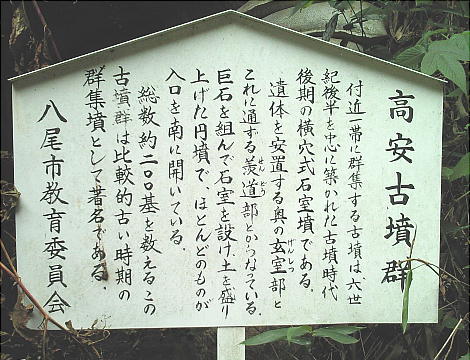 高安古墳群
付近一帯に群集する古墳は六世
紀後半を中心に築かれた古墳時代
後期の横穴式石室墳である。
遺体を安置する奥の玄室部と
げんしつ
これに通ずる羨道部とからなっている。
せんどう
巨石を組んで石室を設け土を盛り
上げた円墳で、ほとんどのものが
入口を南に開いている。
総数約二〇〇基を数えるこの
古墳群は比較的古い時期の
群集墳として著名である。
八尾市教育委員会